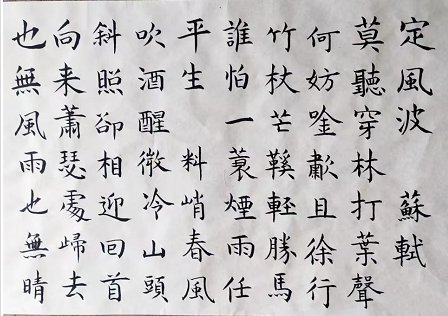 定風波 蘇軾
莫聽穿林打葉聲
何妨唫歗且徐行
竹杖芒鞵軽勝馬
誰怕一蓑煙雨任
平生 料峭春風
吹酒醒微冷山頭
斜照卻相迎回首
向来蕭瑟處歸去
也無風雨也無晴